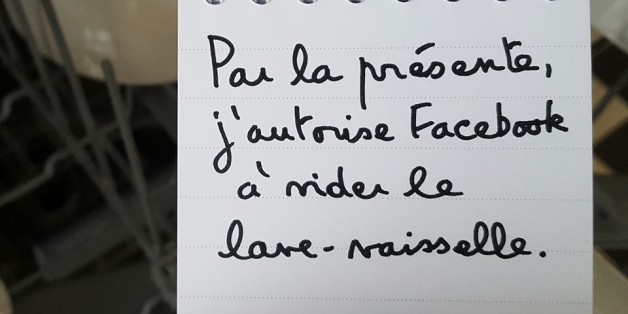 Par la présente,
j'autorise Facebook
à vider le
lave-vaisselle.